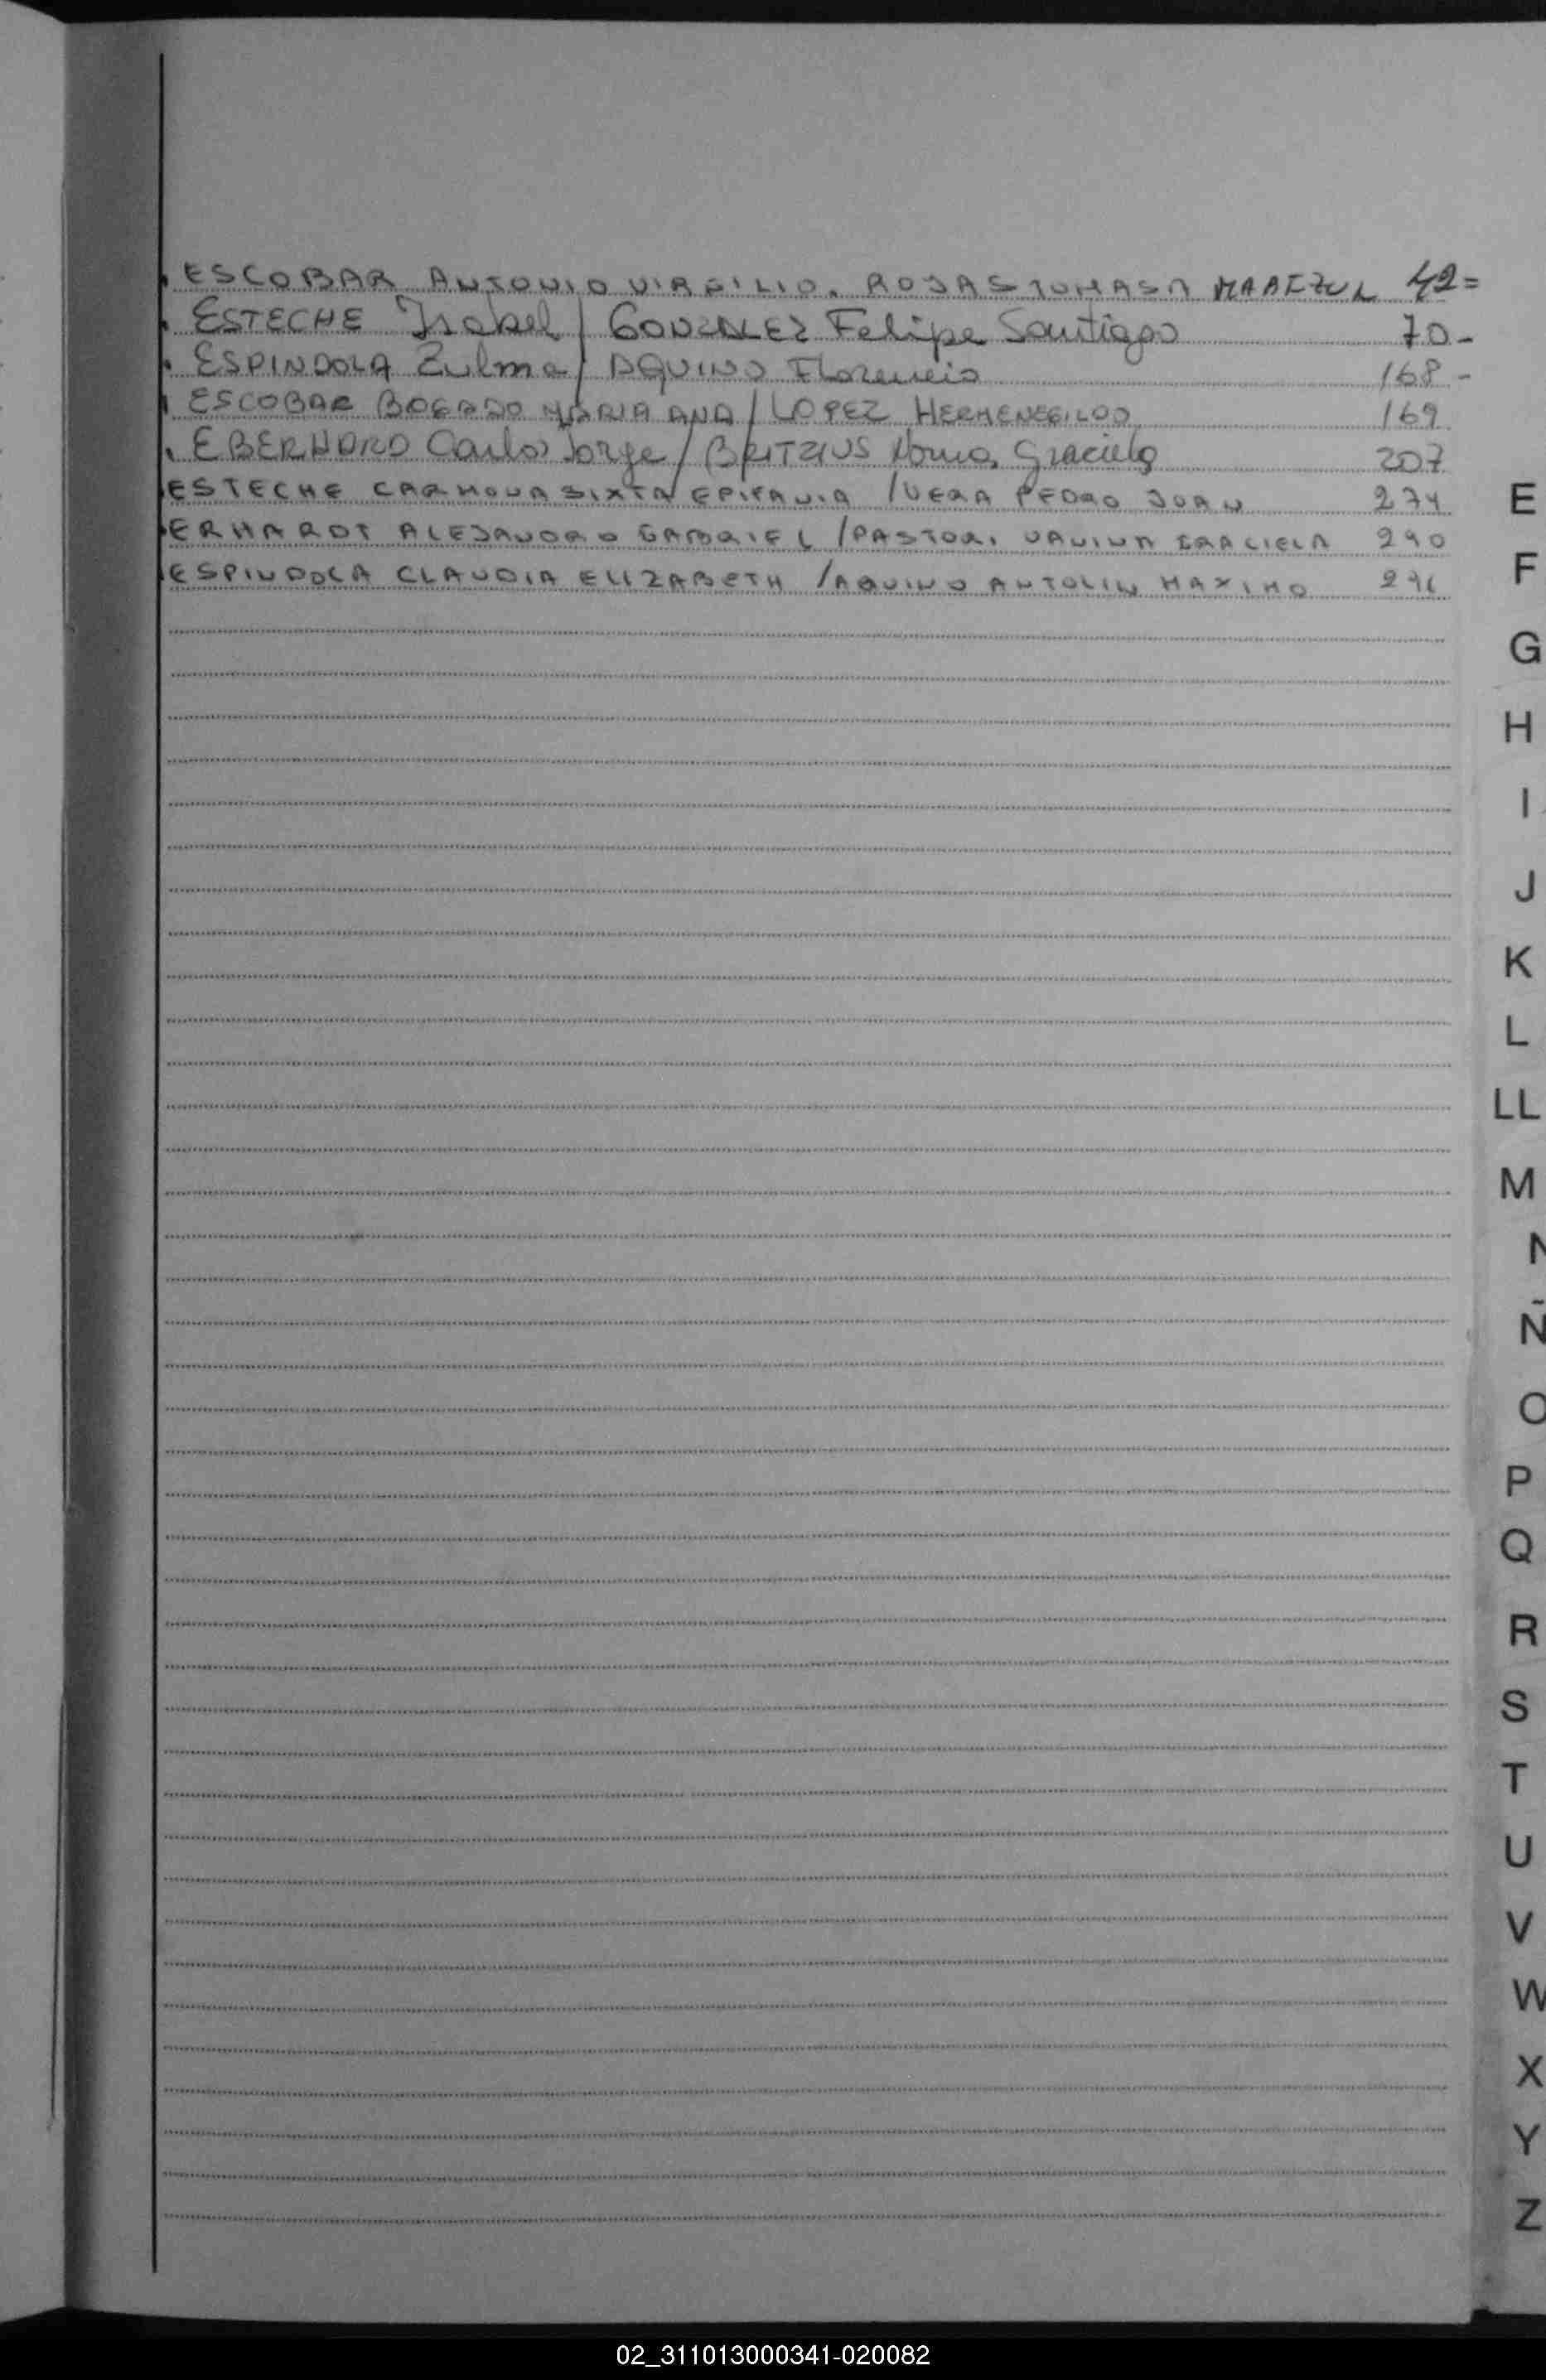 ESCOBAR ANTONIO VIRGILIO. ROJAS TOMASA 42=
ESTECHE Isabel / GONZALEZ Felipe Santiago 70-
ESPINDOLA Zulma / AQUINO Florencio 168-
ESCOBAR BOGADO MARIA ANA / LOPEZ HERMENEGILDO 169
EBERHARD Carlos Jorge / BRITZIUS Norma Graciela 207
ESTECHE CARMONA SIXTA EPIFANIA / VERA PEDRO JUAN 274
ERHARDT ALEJANDRO GABRIEL / PASTORI VANINA GRACIELA 290
ESPINDOLA CLAUDIA ELIZABETH / AQUINO ANTOLIN MAXIMO 296
E
F
G
H
I
J
K
L
LL
M
N
Ñ
O
P
Q
R
S
T
U
V
W
X
Y
Z
02_311013000341-020082